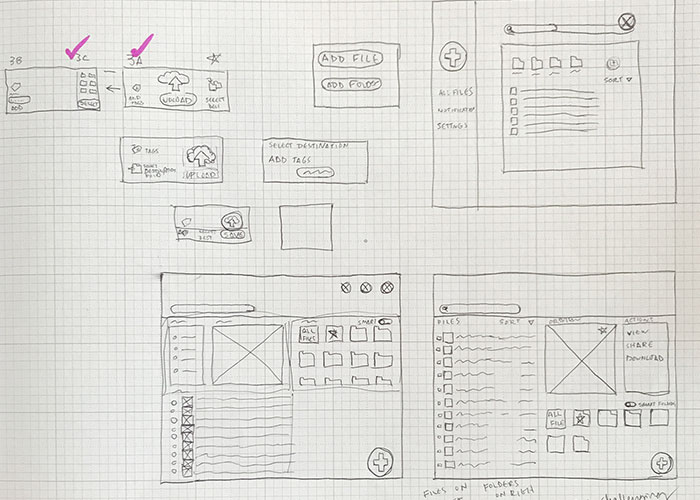 3B
3C
3A
ADD
SELECT
ADD
TAGS
UPLOAD
SELECT
ADD FILE
ADD FOLDER
SORT
ALL FILES
SETTINGS
TAGS
SELECT
DESTINATION
UPLOAD
SELECT DESTINATION
ADD TAGS
SELECT
DEST
SAVE
SMART
ALL
FILES
FILES
SORT
ACTIONS
VIEW
SHARE
DOWNLOAD
SMART FOLDER
ALL
FILE
FILES ON
FOLDERS
ON RIGHT